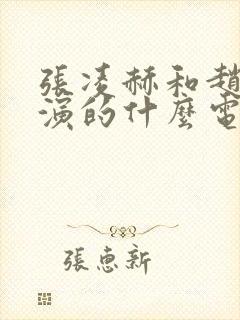 張凌赫和趙
演的什麼電
張惠新